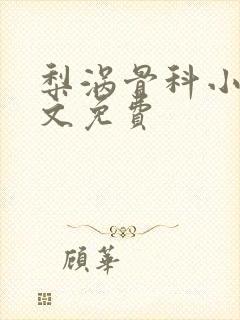 梨涡骨科小
文免費
顧華